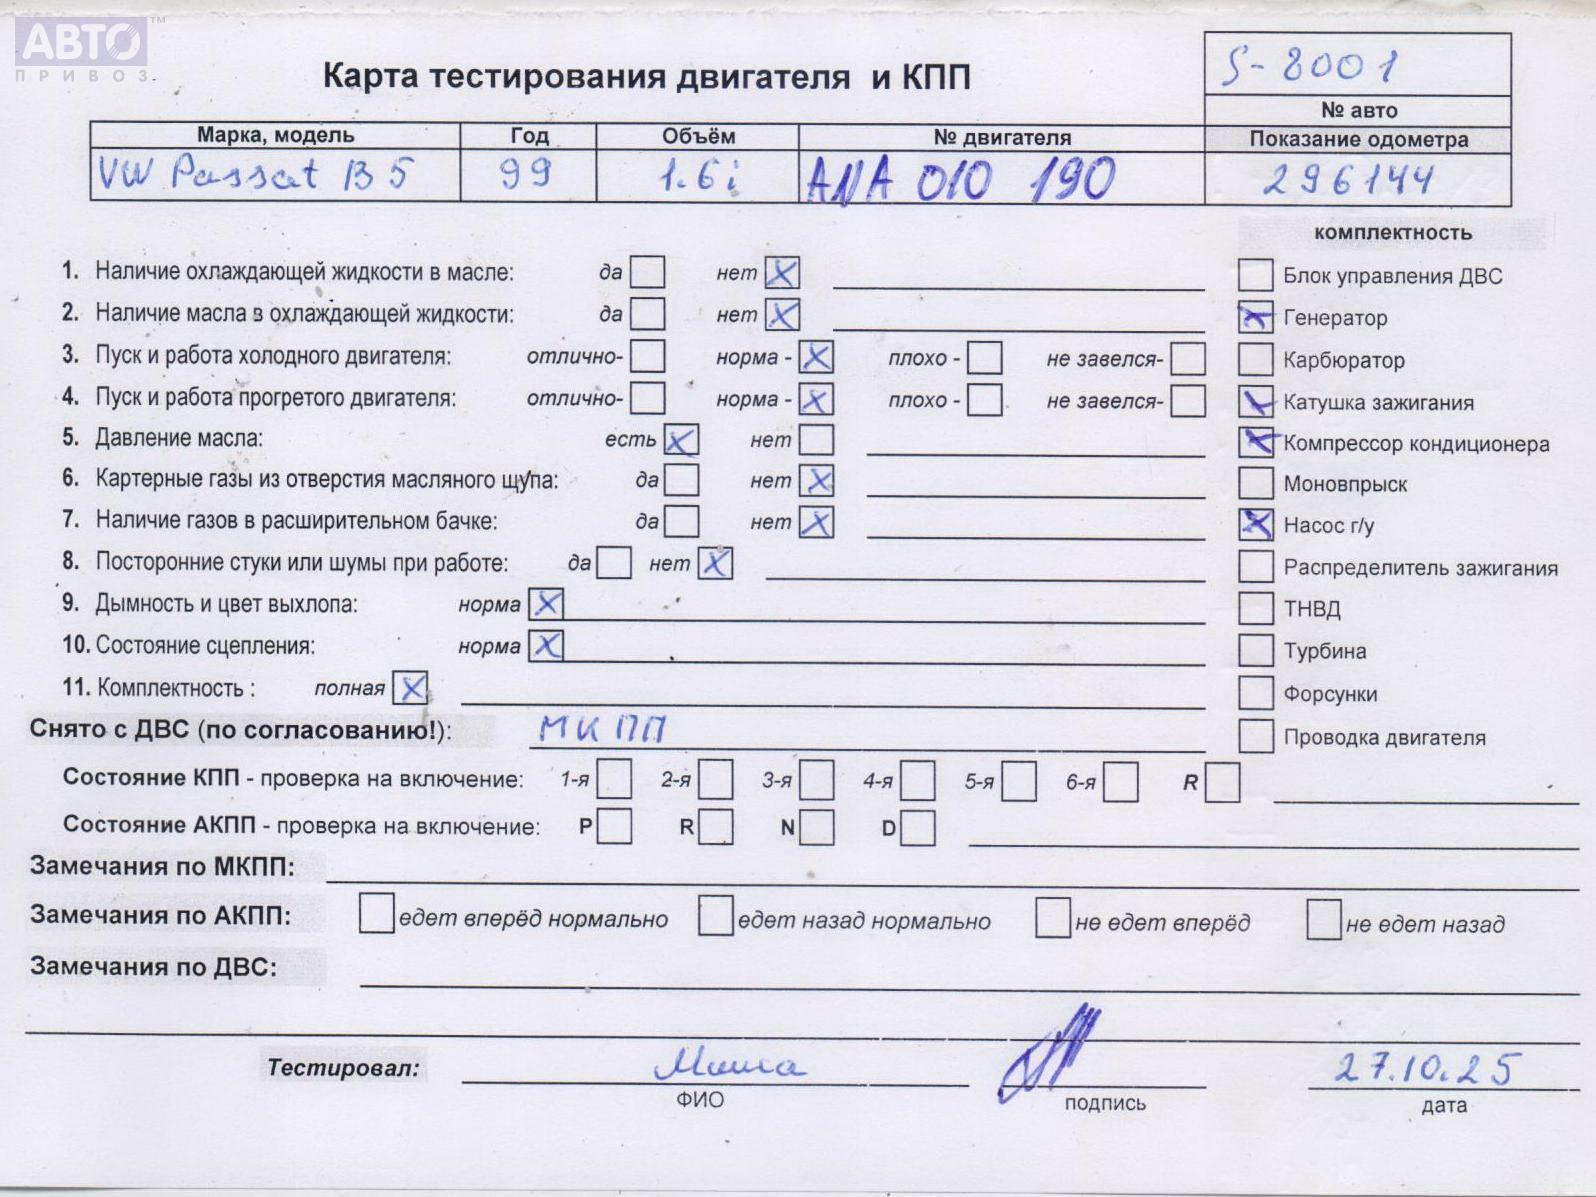 АВТО™
ПРИВОЗ
Карта тестирования двигателя и КПП
S-8001
№ авто
Марка, модель Год Объём № двигателя Показание одометра
VW Passat B5 99 1.6i ANA 010 190 296144
комплектность
1. Наличие охлаждающей жидкости в масле: да нет X
Блок управления ДВС
2. Наличие масла в охлаждающей жидкости: да нет X
X Генератор
3. Пуск и работа холодного двигателя: отлично- норма - X плохо - не завелся-
Карбюратор
4. Пуск и работа прогретого двигателя: отлично- норма - X плохо - не завелся-
X Катушка зажигания
5. Давление масла: есть X нет
X Компрессор кондиционера
6. Картерные газы из отверстия масляного щупа: да нет X
Моновпрыск
7. Наличие газов в расширительном бачке: да нет X
X Насос г/у
8. Посторонние стуки или шумы при работе: да нет X
Распределитель зажигания
9. Дымность и цвет выхлопа: норма X
ТНВД
10. Состояние сцепления: норма X
Турбина
11. Комплектность : полная X
Форсунки
Снято с ДВС (по согласованию!): МКПП
Проводка двигателя
Состояние КПП - проверка на включение: 1-я 2-я 3-я 4-я 5-я 6-я R
Состояние АКПП - проверка на включение: P R N D
Замечания по МКПП:
Замечания по АКПП: едет вперёд нормально едет назад нормально не едет вперёд не едет назад
Замечания по ДВС:
Тестировал: 27.10.25
ФИО подпись дата